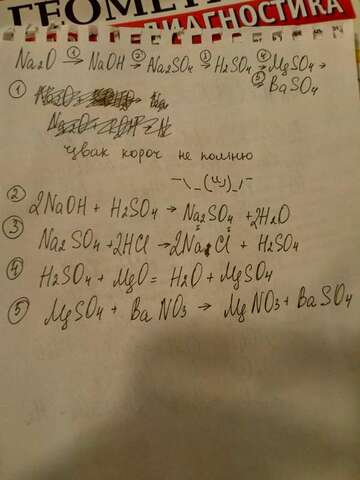 ГЕОМЕТ
ДИАГНОСТИКА
Na₂O →① NaOH →② Na₂SO₄ →③ H₂SO₄ →④ MgSO₄ →
⑤ BaSO₄
①
Цвак короч не помню
¯\_(ツ)_/¯
② 2NaOH + H₂SO₄ → Na₂SO₄ + 2H₂O
③ Na₂SO₄ + 2HCl → 2NaCl + H₂SO₄
④ H₂SO₄ + MgO = H₂O + MgSO₄
⑤ MgSO₄ + BaNO₃ → MgNO₃ + BaSO₄